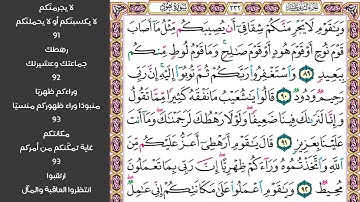 سورة هود
٢٣٢
وَيَٰقَوْمِ لَا يَجْرِمَنَّكُمْ شِقَاقِىٓ أَن يُصِيبَكُم مِّثْلُ مَآ أَصَابَ
قَوْمَ نُوحٍ أَوْ قَوْمَ هُودٍ أَوْ قَوْمَ صَٰلِحٍ ۚ وَمَا قَوْمُ لُوطٍ مِّنكُم
بِبَعِيدٍ ٨٩ وَٱسْتَغْفِرُوا۟ رَبَّكُمْ ثُمَّ تُوبُوٓا۟ إِلَيْهِ ۚ إِنَّ رَبِّى
رَحِيمٌ وَدُودٌ ٩٠ قَالُوا۟ يَٰشُعَيْبُ مَا نَفْقَهُ كَثِيرًا مِّمَّا تَقُولُ
وَإِنَّا لَنَرَىٰكَ فِينَا ضَعِيفًا ۖ وَلَوْلَا رَهْطُكَ لَرَجَمْنَٰكَ ۖ وَمَآ أَنتَ
عَلَيْنَا بِعَزِيزٍ ٩١ قَالَ يَٰقَوْمِ أَرَهْطِىٓ أَعَزُّ عَلَيْكُم مِّنَ
ٱللَّهِ وَٱتَّخَذْتُمُوهُ وَرَآءَكُمْ ظِهْرِيًّا ۖ إِنَّ رَبِّى بِمَا تَعْمَلُونَ
مُحِيطٌ ٩٢ وَيَٰقَوْمِ ٱعْمَلُوا۟ عَلَىٰ مَكَانَتِكُمْ إِنِّى عَٰمِلٌ
لا يجرمنّكم
لا يكسبنّكم أو لا يحملنّكم
91
رهطك
جماعتك وعشيرتك
92
وراءكم ظهريّا
منبوذا وراء ظهوركم منسيّا
93
مكانتكم
غاية تمكّنكم من أمركم
93
ارتقبوا
انتظروا العاقبة والمآل